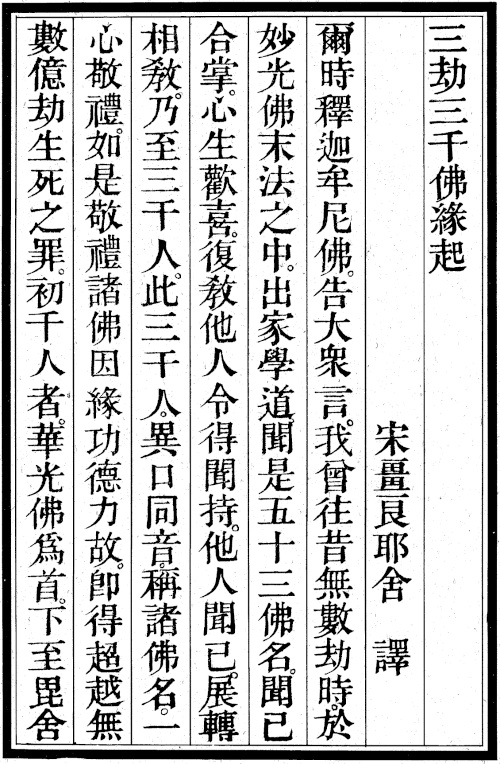 三劫三千佛緣起
宋畺良耶舍　譯
爾時釋迦牟尼佛。告大衆言。我曾往昔無數劫時。於
妙光佛末法之中。出家學道。聞是五十三佛名。聞已
合掌。心生歡喜。復教他人令得聞持。他人聞已。展轉
相教。乃至三千人。此三千人。異口同音。稱諸佛名。一
心敬禮。如是敬禮諸佛因緣功德力故。即得超越無
數億劫生死之罪。初千人者。華光佛爲首。下至毘舍